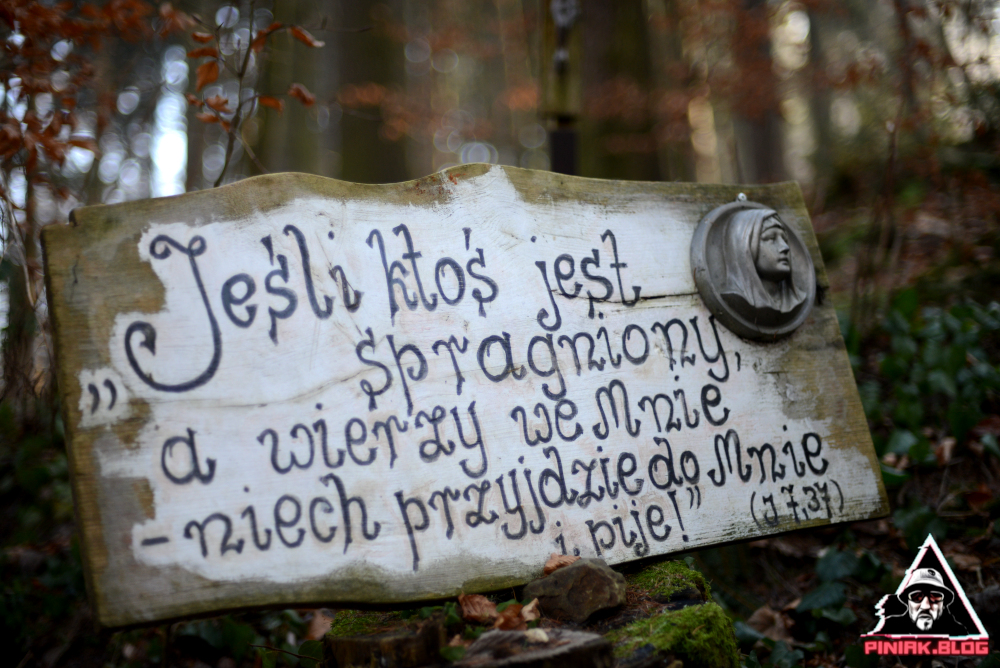 „Jeśli ktoś jest
spragniony,
a wierzy we Mnie
- niech przyjdzie do Mnie
i pije!” (J 7,37)
PINIAK.BLOG